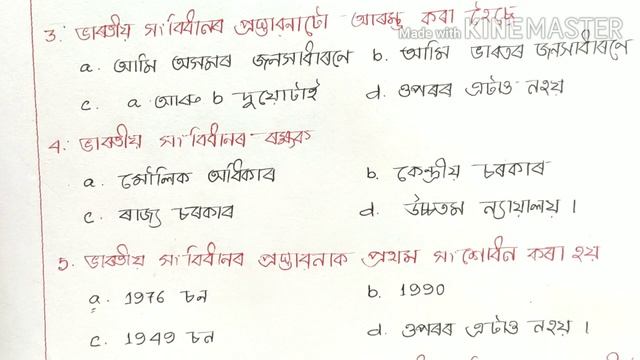 3. ভাৰতীয় সংবিধানৰ প্ৰস্তাৱনাটো আৰম্ভ কৰা হৈছে
Made with KINEMASTER
a. আমি অসমৰ জনসাধাৰণে b. আমি ভাৰতৰ জনসাধাৰণে
c. a আৰু b দুয়োটাই d. ওপৰৰ এটাও নহয়
4. ভাৰতীয় সংবিধানৰ ৰক্ষক
a. মৌলিক অধিকাৰ b. কেন্দ্ৰীয় চৰকাৰ
c. ৰাজ্য চৰকাৰ d. উচ্চতম ন্যায়ালয় ।
5. ভাৰতীয় সংবিধানৰ প্ৰস্তাৱনাক প্ৰথম সংশোধন কৰা হয়
a. 1976 চন b. 1990
c. 1949 চন d. ওপৰৰ এটাও নহয় ।